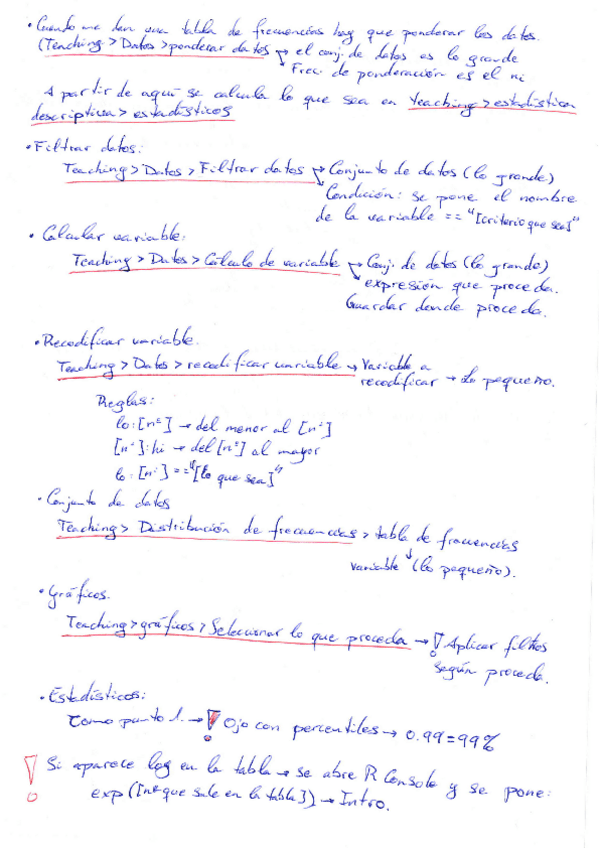 • Cuando me dan una tabla de frecuencias hay que ponderar los datos.
(Teaching > Datos > ponderar datos → el conj. de datos es lo grande
→ Frec. de ponderación es el ni
A partir de aquí se calcula lo que sea en teaching > estadística
descriptiva > estadísticos
• Filtrar datos:
Teaching > Datos > Filtrar datos → Conjunto de datos (lo grande)
→ Condición: se pone el nombre
de la variable == "[criterio que sea]"
• Calcular variable:
Teaching > Datos > Cálculo de variable → Conj. de datos (lo grande)
→ expresión que proceda.
Guardar donde proceda.
• Recodificar variable.
Teaching > Datos > recodificar variable → Variable a
recodificar → Lo pequeño.
Reglas:
lo:[nº] → del menor al [nº]
[nº]:hi → del [nº] al mayor
lo:[nº] == "[lo que sea]"
• Conjunto de datos
Teaching > Distribución de frecuencias > tabla de frecuencias
↓
variable (lo pequeño).
• Gráficos.
Teaching > gráficos > Seleccionar lo que proceda → ! Aplicar filtros
según proceda.
• Estadísticos:
Como punto 1. → ! Ojo con percentiles → 0.99 = 99%
! Si aparece log en la tabla → se abre R Console y se pone:
exp([nº que sale en la tabla]) → Intro.